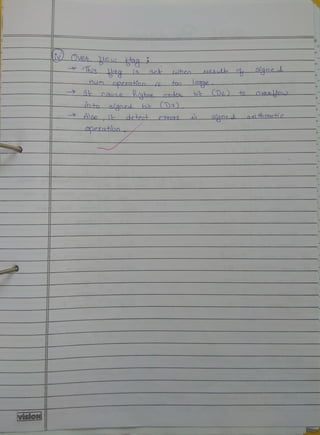 (iv) Over flow flag :
→ This flag is set when result of signed
num operation is too large.
→ It cause higher order bit (D6) to overflow
into signed bit (D7).
→ Also, it detect errors in signed arithmetic
operation.
vision